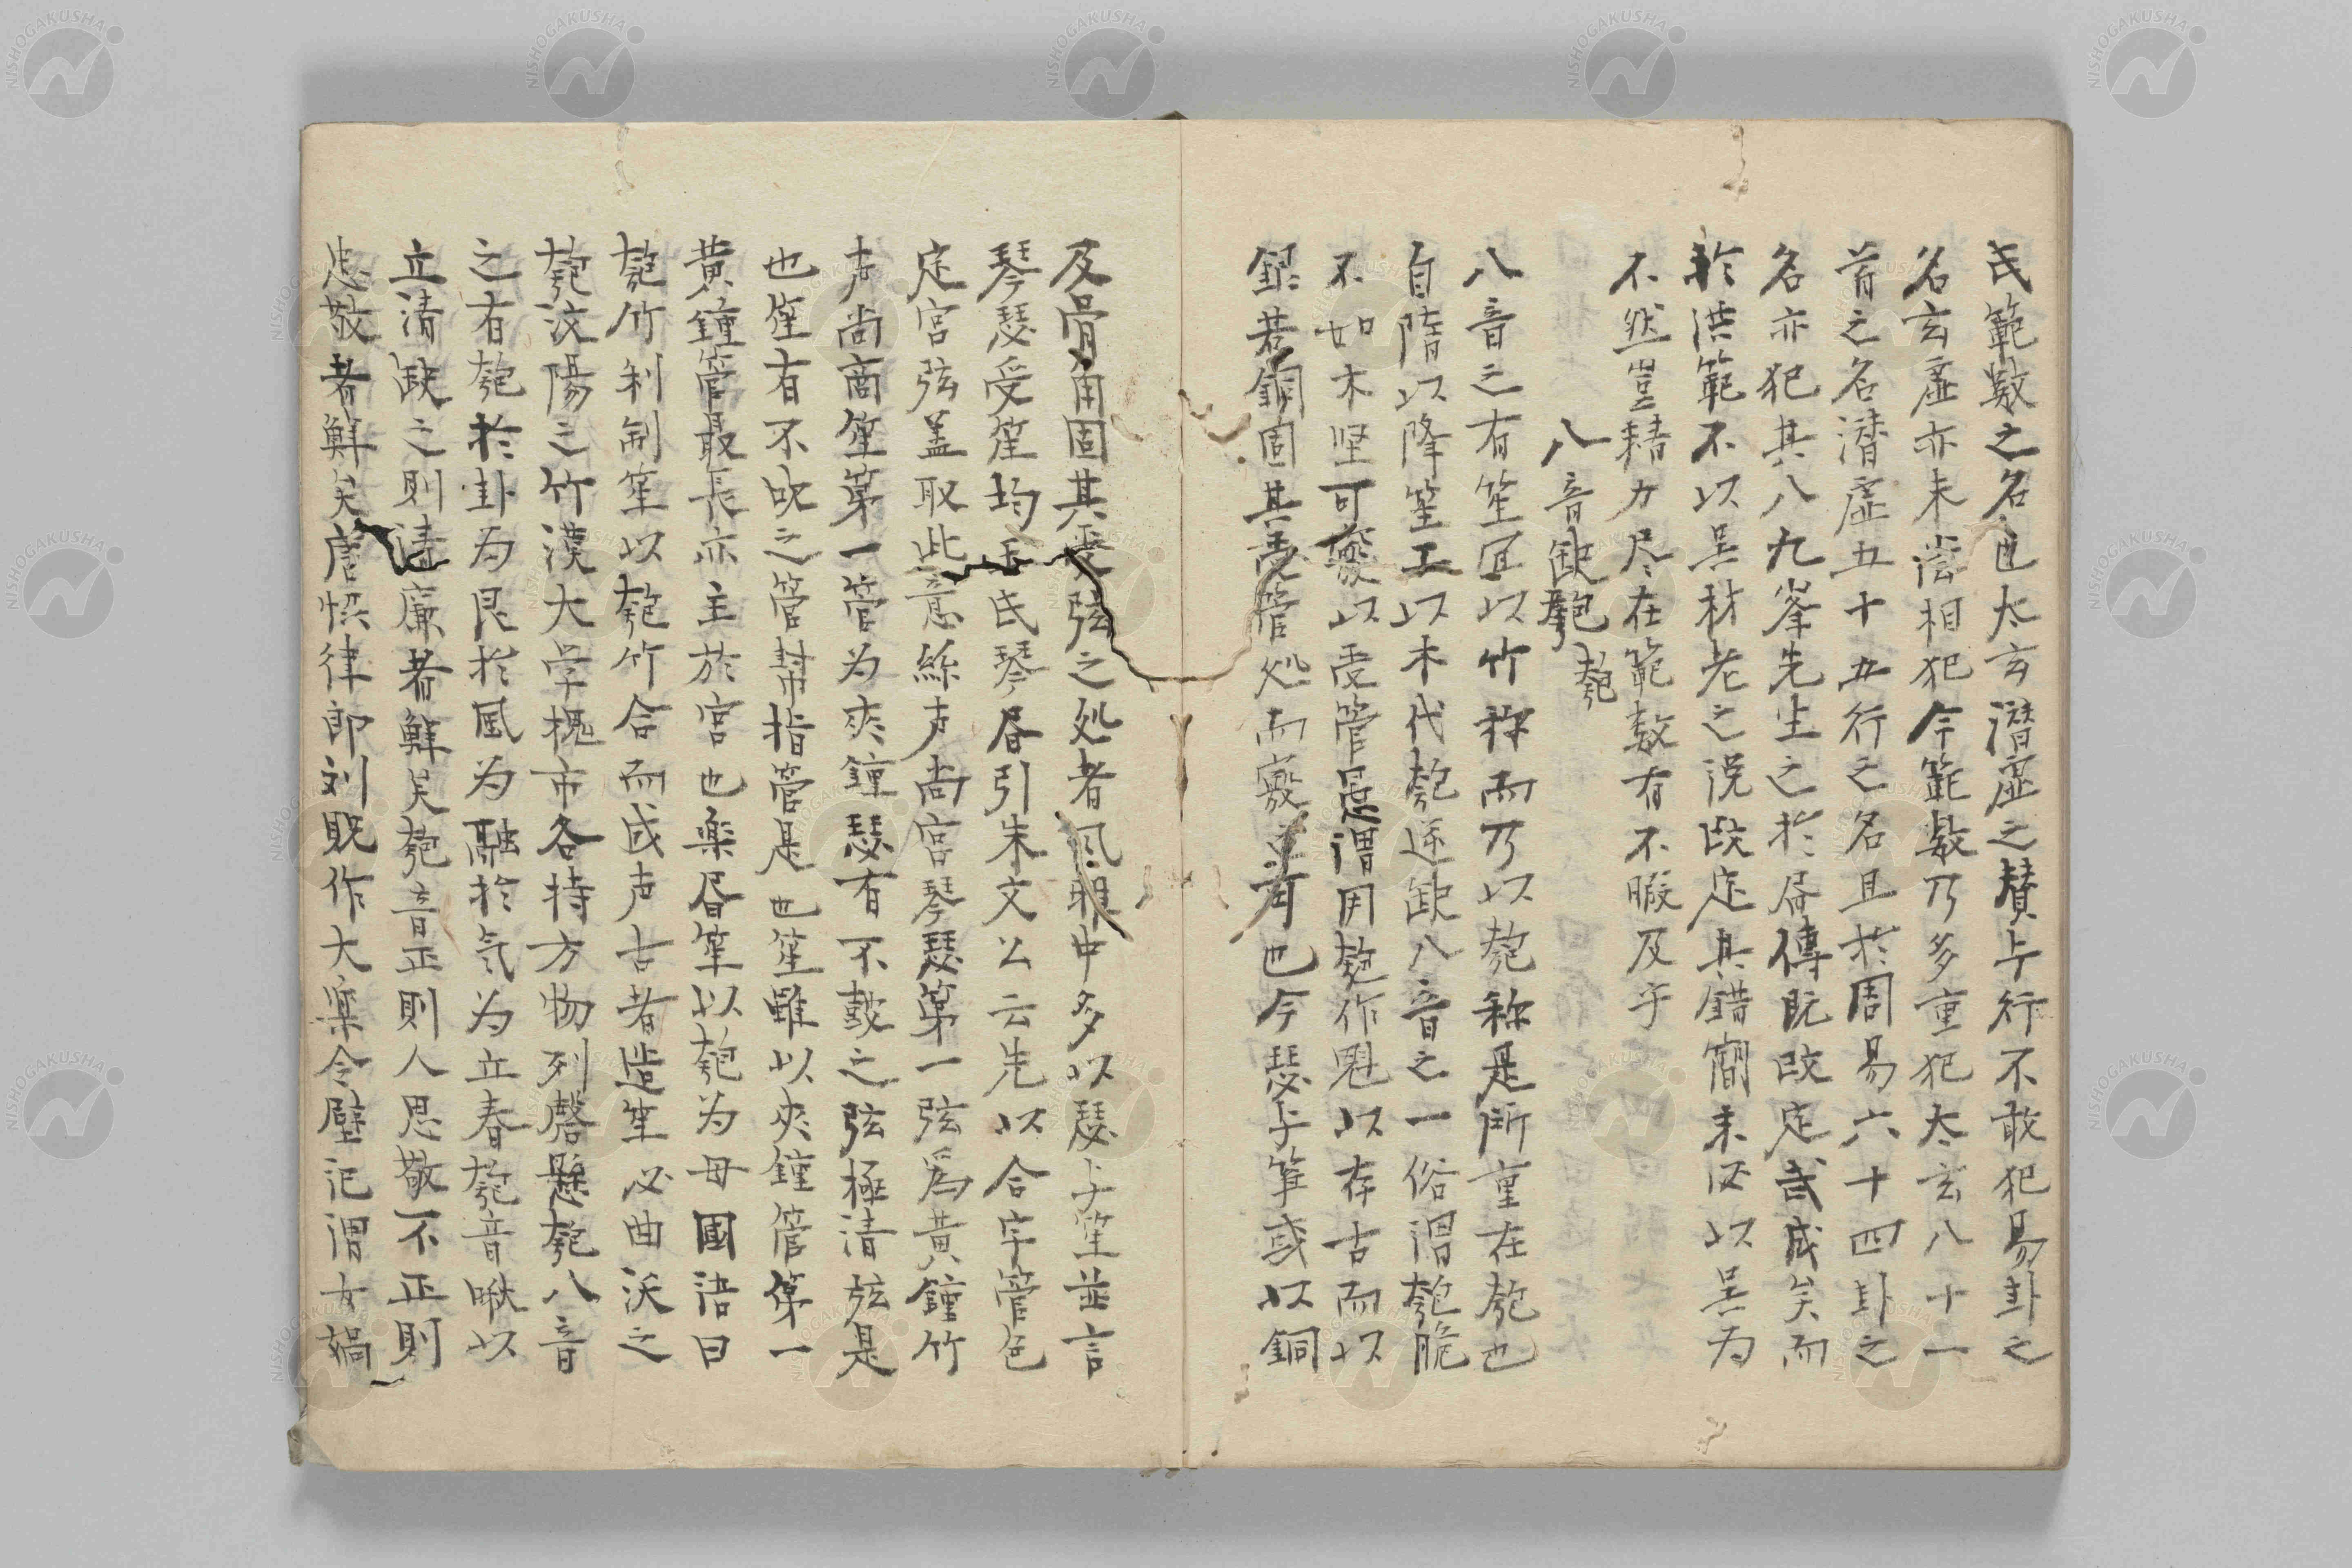 氏範数之名也太玄潜虚之賛与行不敢犯易卦之
名玄虚亦未嘗相犯今範数乃多重犯太玄八十一
首之名潜虚五十五行之名且於周易六十四卦之
名亦犯其八九峯先生之於昏傳既改定武成矣而
於洪範不以呉材老之説改定其錯簡未必以呉為
不然豈精力尽在範数有不暇及乎
八音缺匏
匏
八音之有笙宜以竹称而乃以匏称是所重在匏也
自隋以降笙工以木代匏遂缺八音之一俗謂匏脆
不如木堅可以受管愚謂用匏作魁以存古而以
銀若銅固其受管処而竅之可也今瑟与箏或以銅
及骨角固其受弦之処者風眼中多以瑟与笙並言
琴瑟受笙均玉氏琴昏引朱文公云先以合字管色
定宮弦盖取此意絲声尚宮琴瑟第一弦為黄鐘竹
声尚商笙第一管為夾鐘瑟有不鼓之弦極清弦是
也笙有不吹之管幇指管是也笙雖以夾鐘管第一
黄鐘管最長亦主於宮也楽昏笙以匏为母國語曰
匏竹利制笙以匏竹合而成声古者造笙必曲沃之
匏汶陽之竹漢大学槐市各持方物列磬懸匏八音
之有匏於卦為艮於風為融於気为立春匏音啾以
立清缺之則清廉者鮮矣匏音正則人思敬不正則
忠敬者鮮矣唐協律郎刘貺作大楽令壁记謂女媧